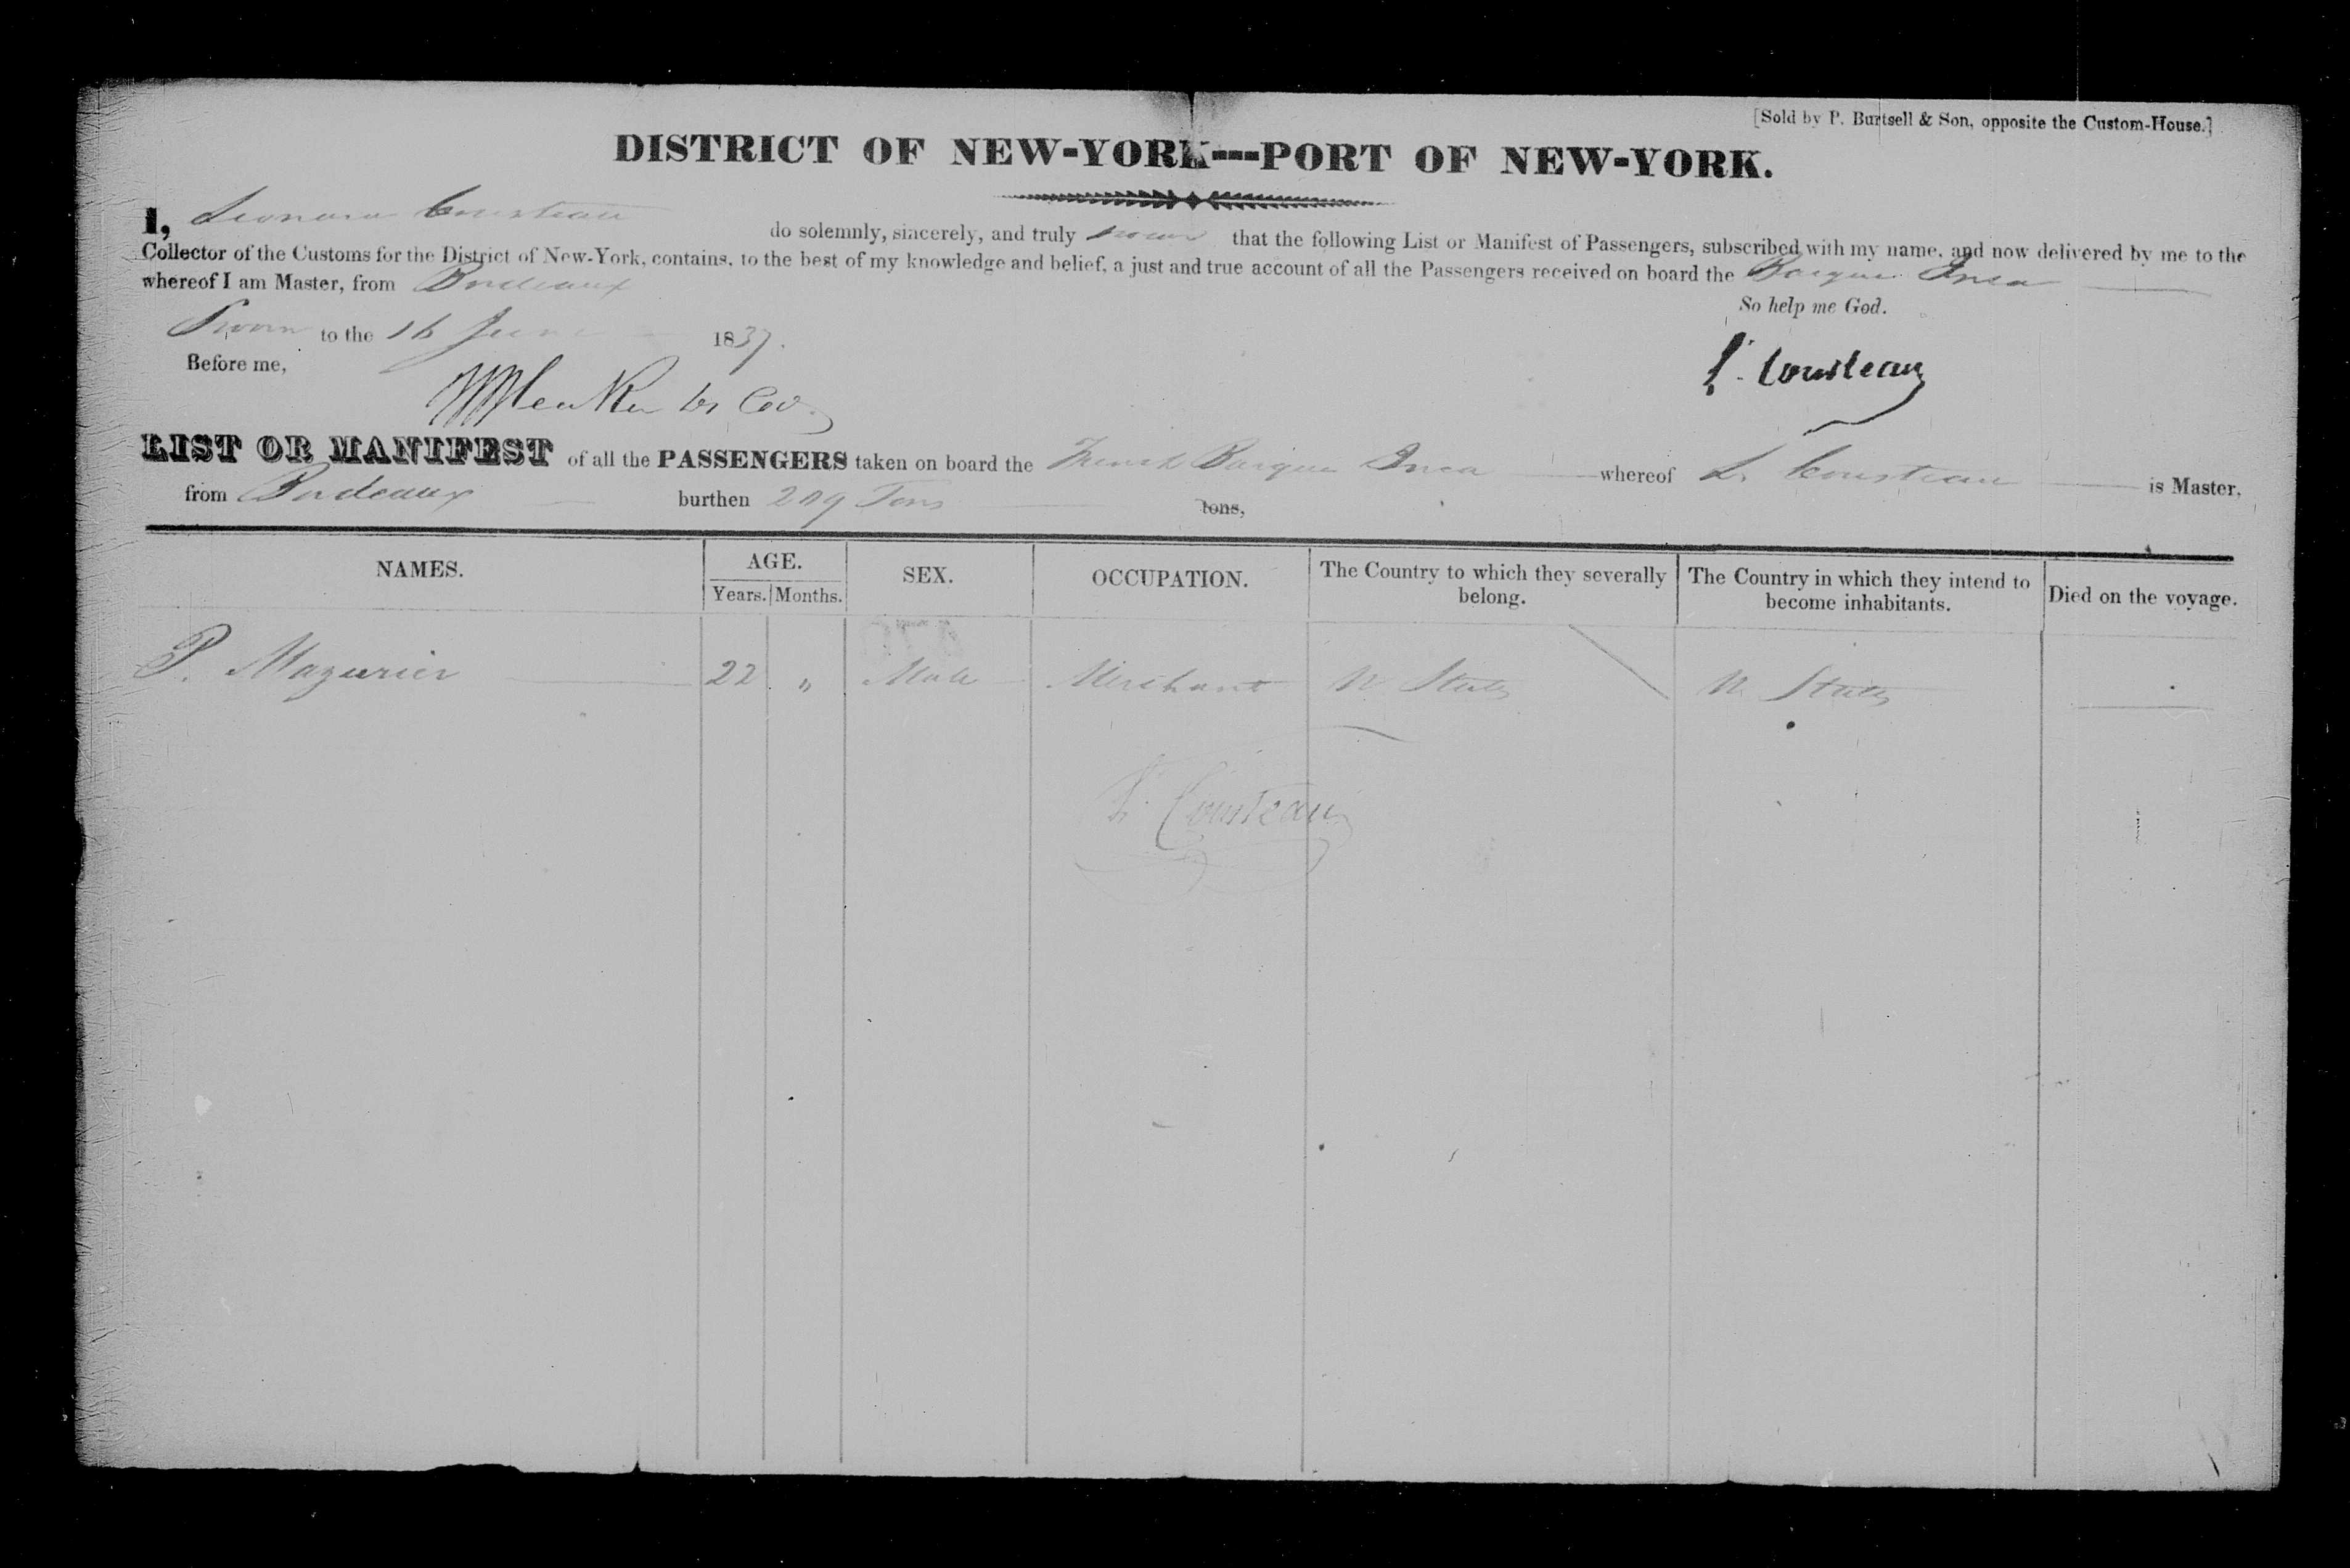 [Sold by P. Burtsell & Son, opposite the Custom-House.]
DISTRICT OF NEW-YORK---PORT OF NEW-YORK.
I, Leonard Cousteau do solemnly, sincerely, and truly swear that the following List or Manifest of Passengers, subscribed with my name, and now delivered by me to the
Collector of the Customs for the District of New-York, contains, to the best of my knowledge and belief, a just and true account of all the Passengers received on board the Barque Inca
whereof I am Master, from Bordeaux
So help me God.
Sworn to the 16 June 1837.
Before me,
L. Cousteau
LIST OR MANIFEST of all the PASSENGERS taken on board the French Barque Inca whereof L. Cousteau is Master,
from Bordeaux burthen 209 Tons tons,
NAMES. AGE. SEX. OCCUPATION. The Country to which they severally belong. The Country in which they intend to become inhabitants. Died on the voyage.
Years. Months.
P. Mazurier 22 " Male Merchant U States U States
L. Cousteau